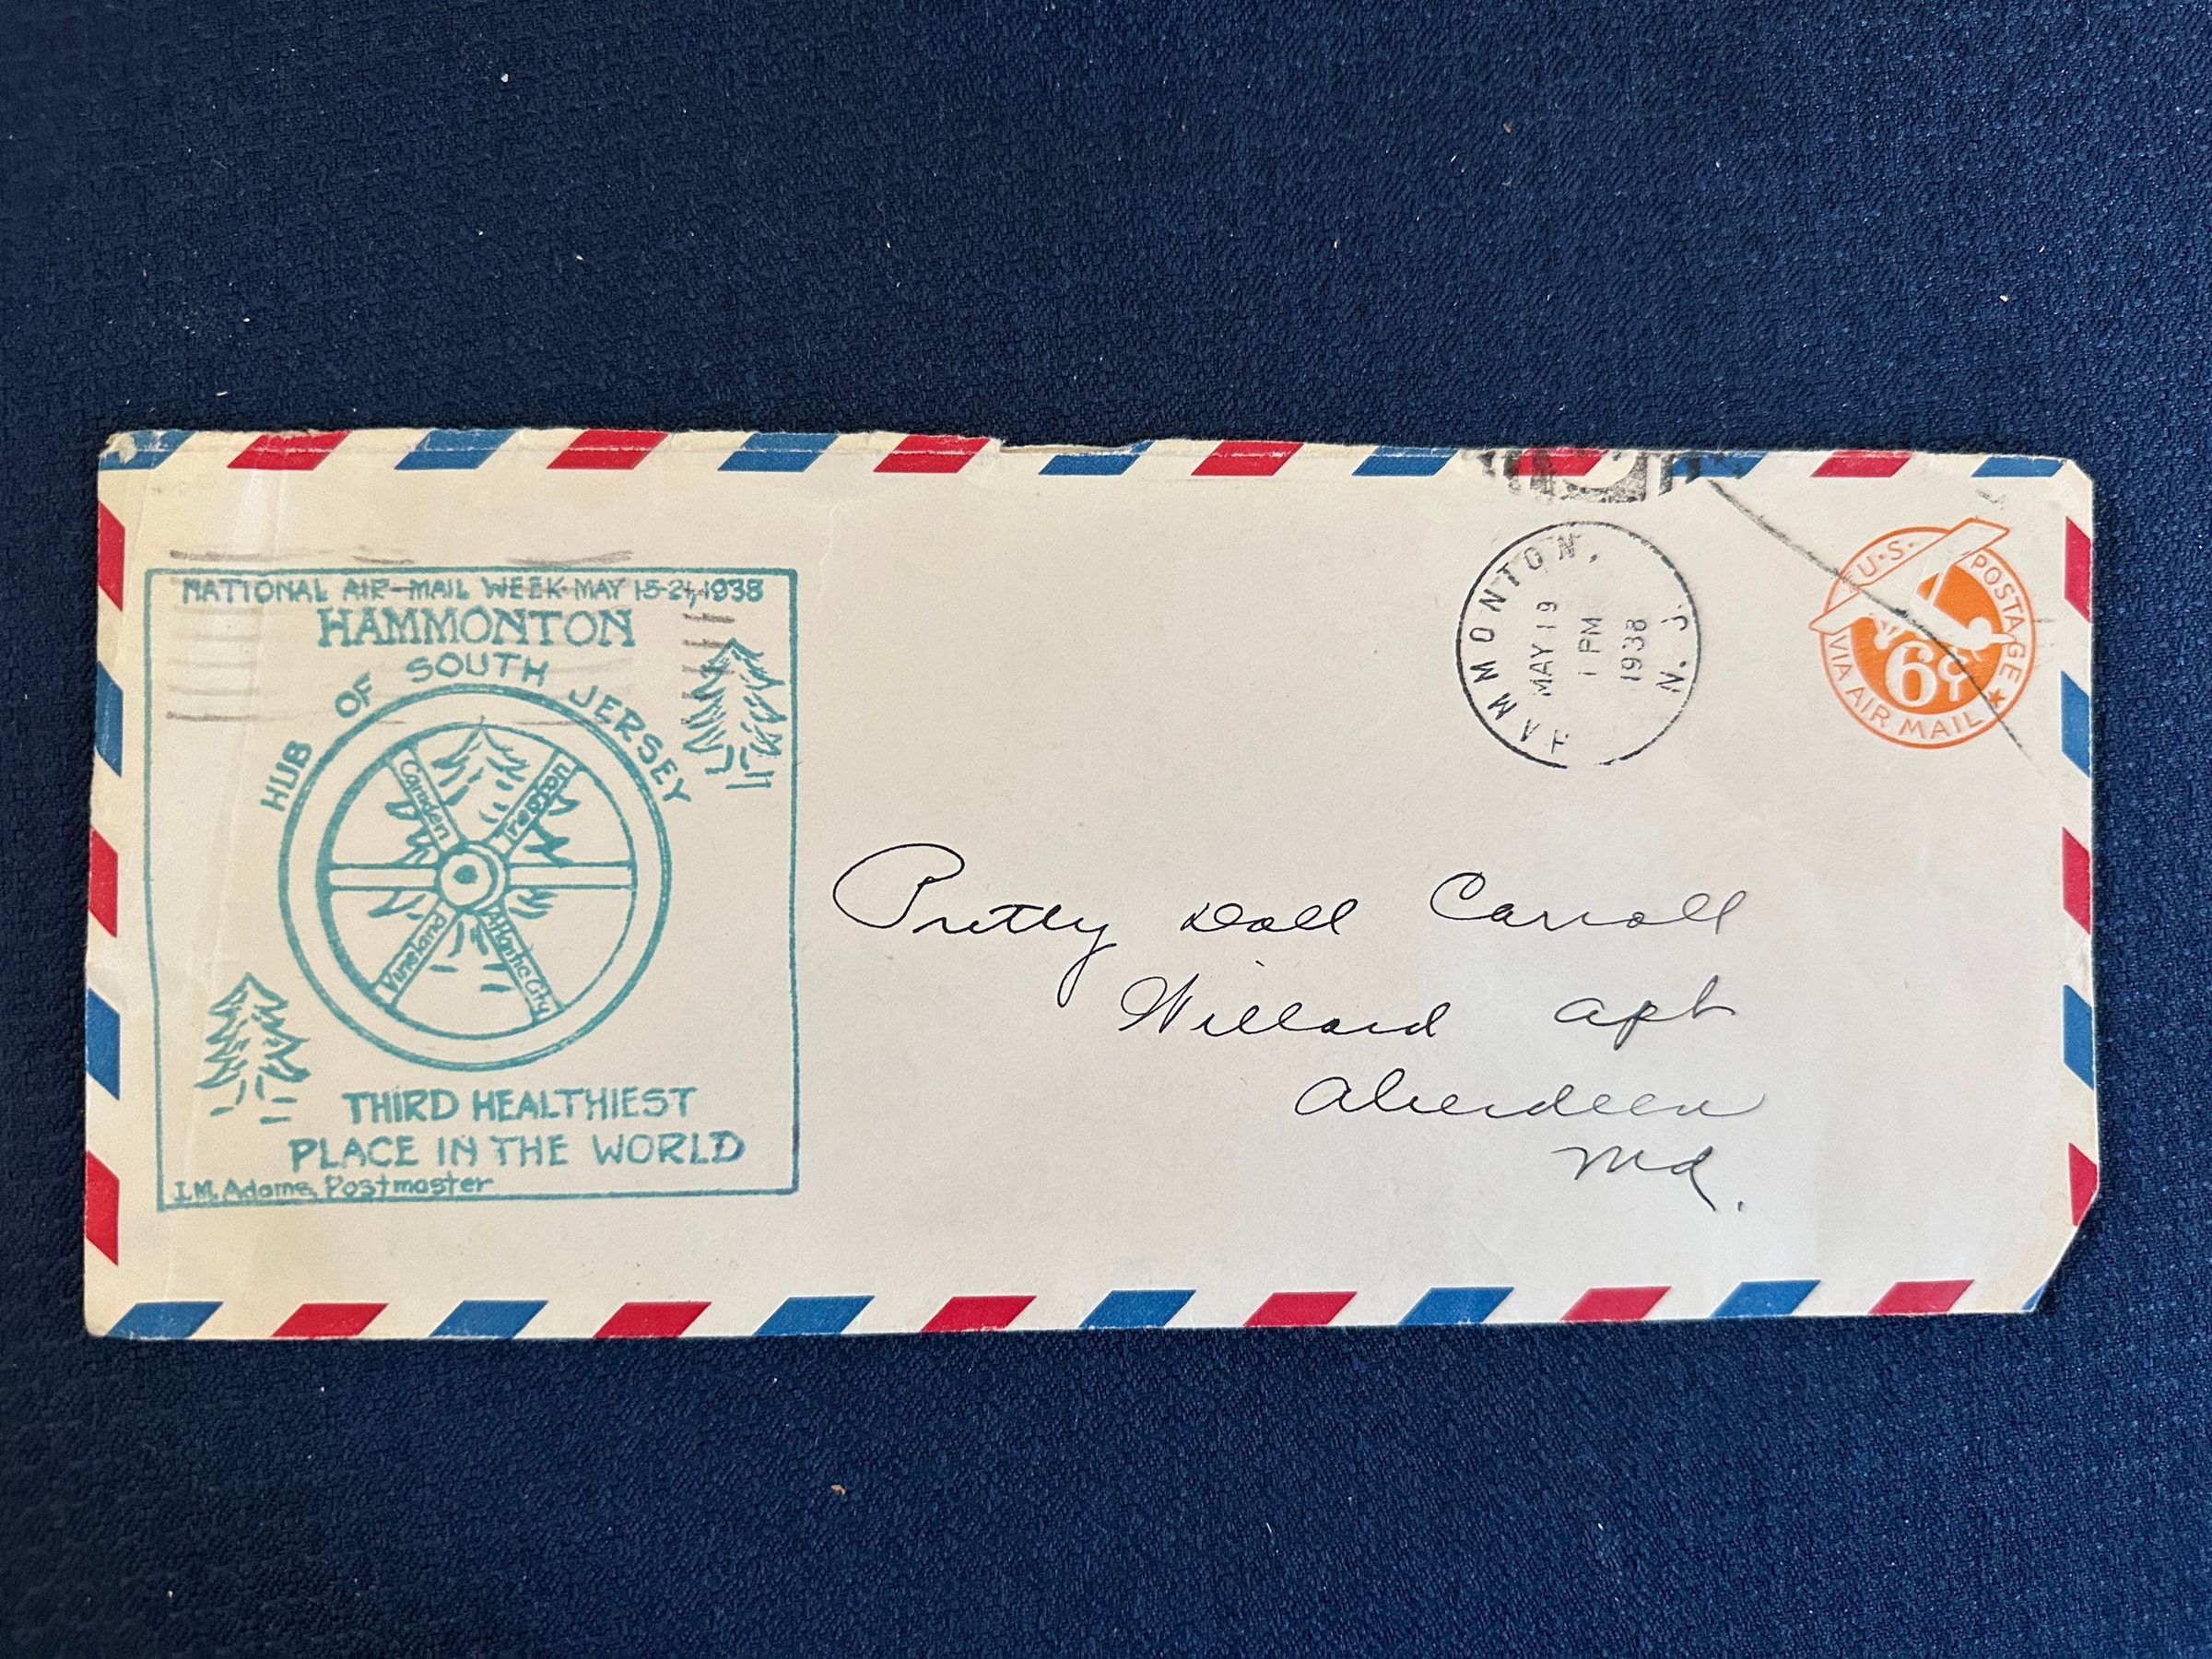 NATIONAL AIR-MAIL WEEK-MAY 15-21, 1938
HAMMONTON
HUB OF SOUTH JERSEY
Camden
Trenton
Vineland
Atlantic City
THIRD HEALTHIEST
PLACE IN THE WORLD
I.M. Adams, Postmaster
HAMMONTON, N. J.
MAY 19
1 PM
1938
U.S. POSTAGE
6¢
VIA AIR MAIL
Pretty Doll Carroll
Willard apt
Aberdeen
Md.